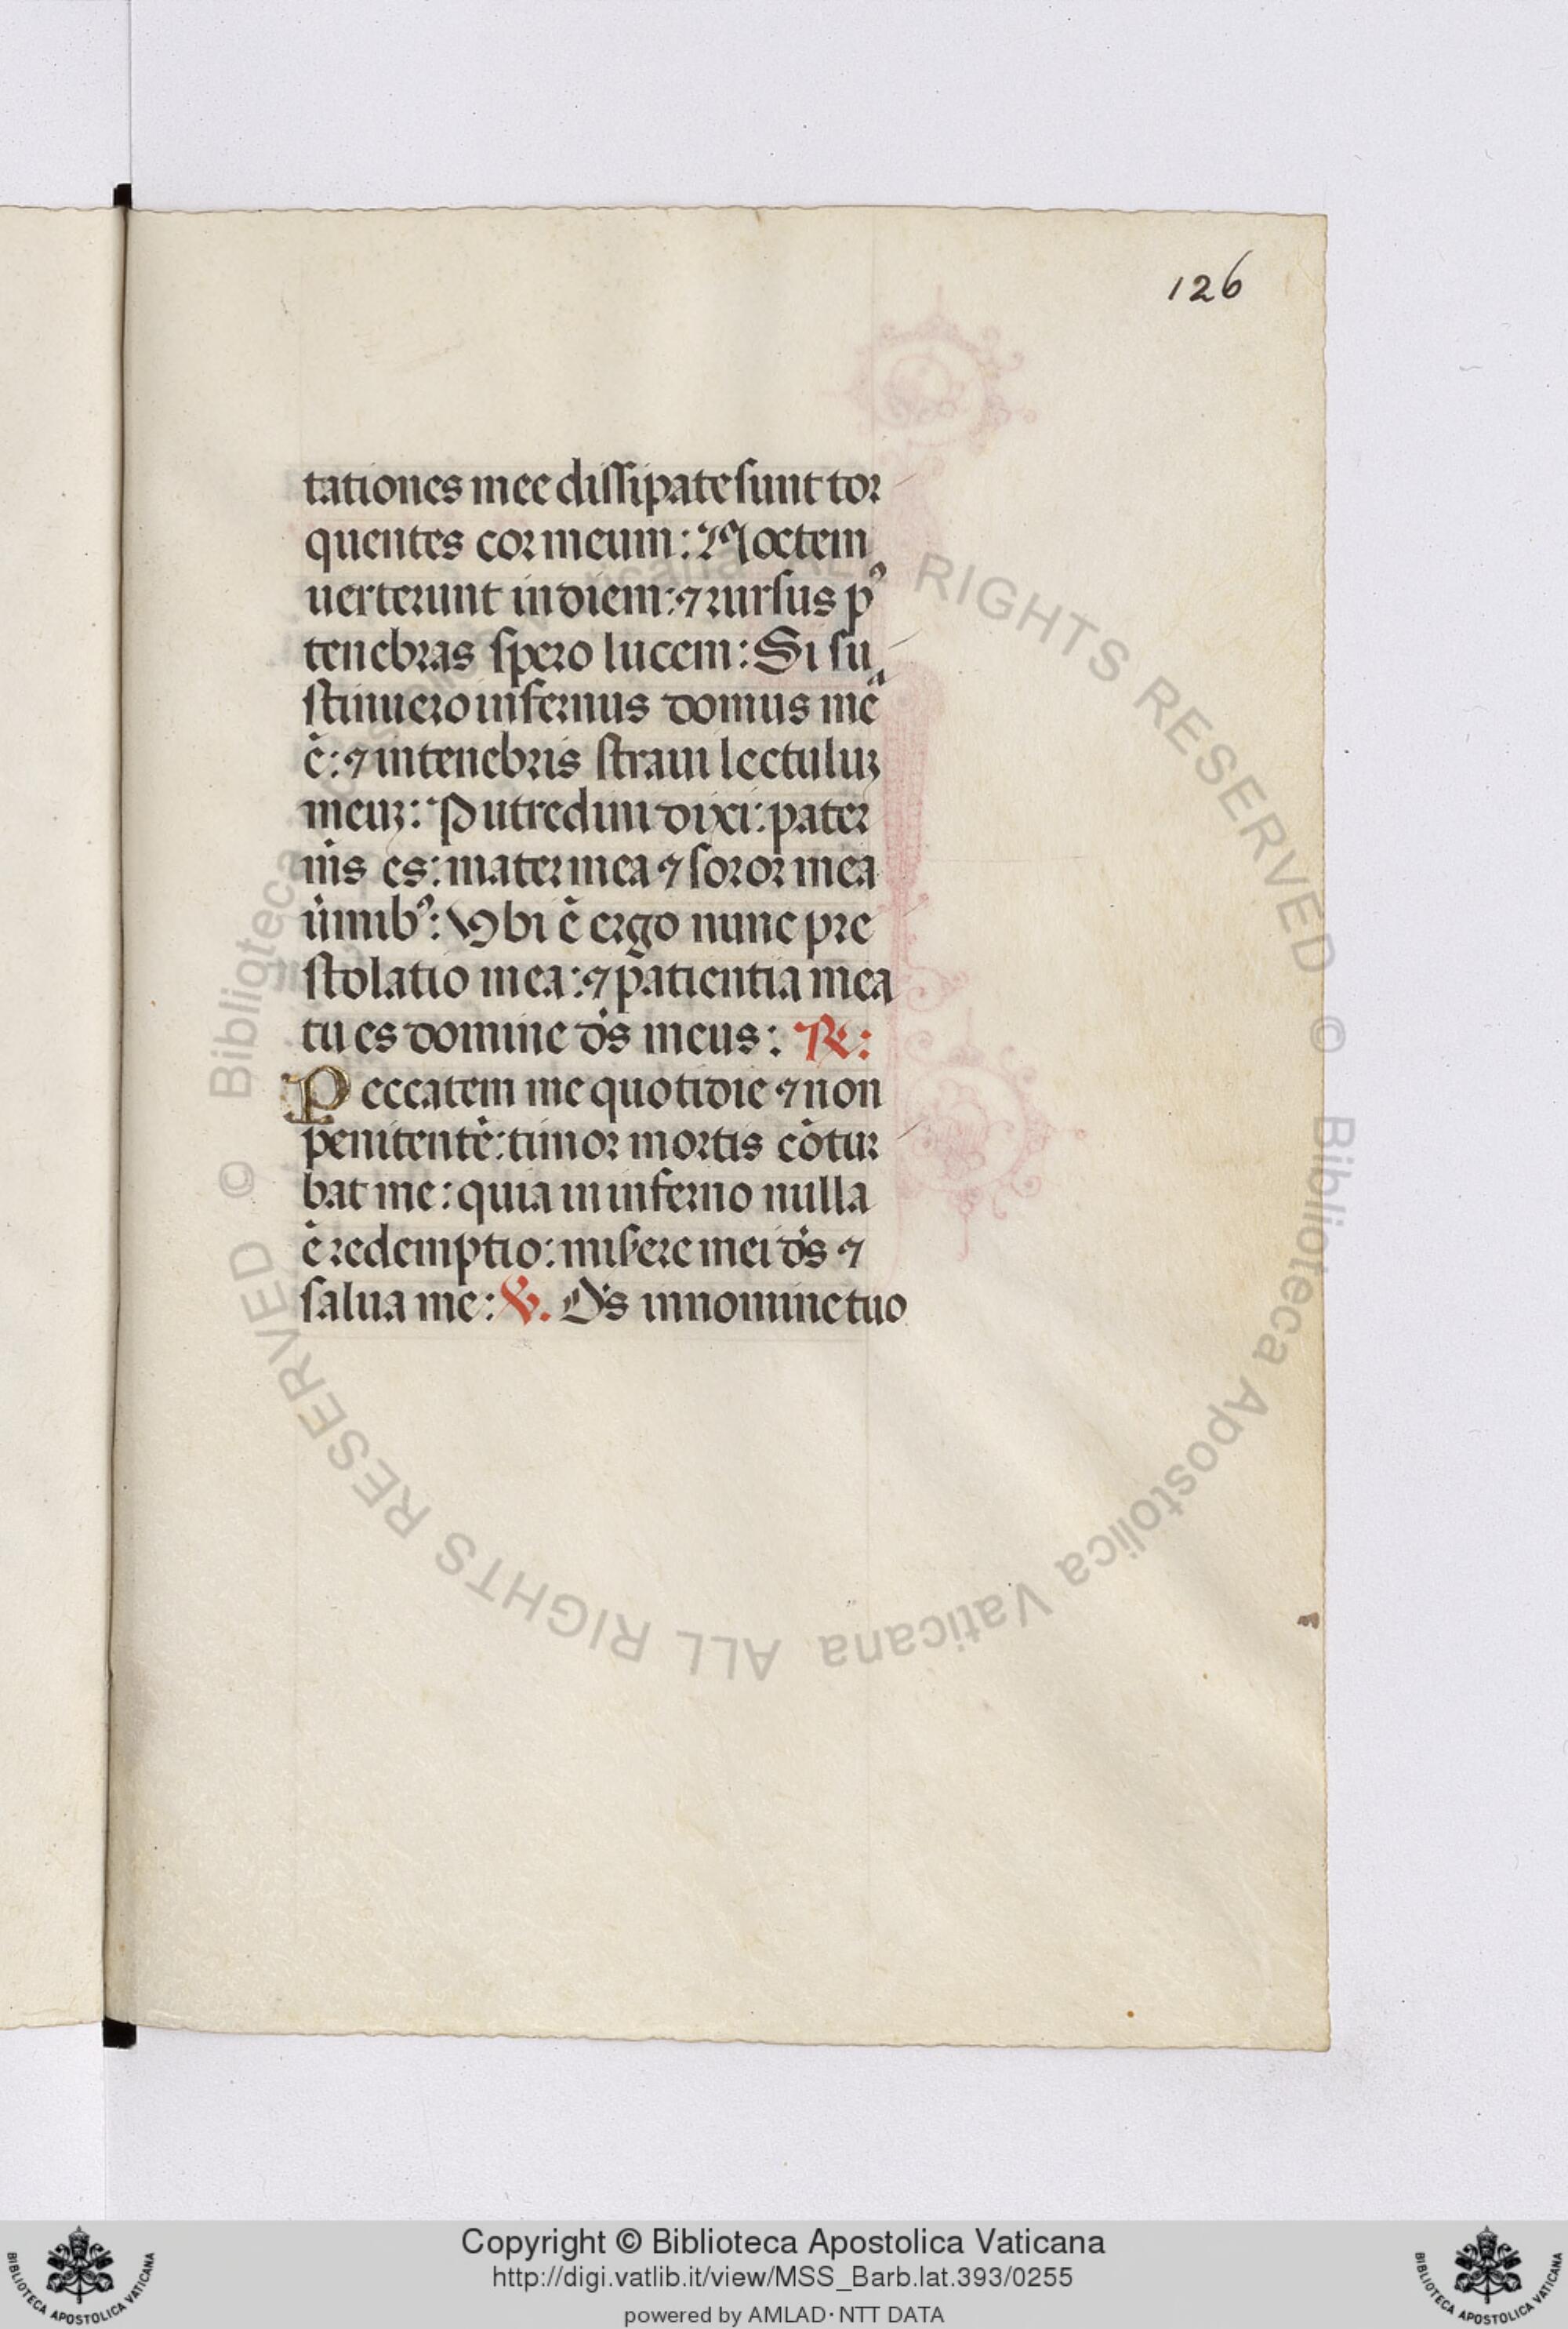 126
tationes mee dissipate sunt tor
quentes cor meum: Noctem
uerterunt in diem: ⁊ rursus pꝰ
tenebras spero lucem: Si su
stinuero infernus domus mea
ē: ⁊ in tenebris straui lectuluꝫ
meuꝫ: Putredini dixi: pater
m̄s es: mater mea ⁊ soror mea
ūmibꝰ: Vbi ē ergo nunc pre
stolatio mea: ⁊ patientia mea
tu es domine ds̄ meus: ℞:
Peccatem me quotidie ⁊ non
penitentē: timor mortis cōtur
bat me: quia in inferno nulla
ē redemptio: miserere mei ds̄ ⁊
salua me: ℣. Ds̄ in nomine tuo
© Biblioteca Apostolica Vaticana ALL RIGHTS RESERVED © Biblioteca Apostolica Vaticana ALL RIGHTS RESERVED
Copyright © Biblioteca Apostolica Vaticana
http://digi.vatlib.it/view/MSS_Barb.lat.393/0255
powered by AMLAD·NTT DATA
BIBLIOTECA APOSTOLICA VATICANA
BIBLIOTECA APOSTOLICA VATICANA